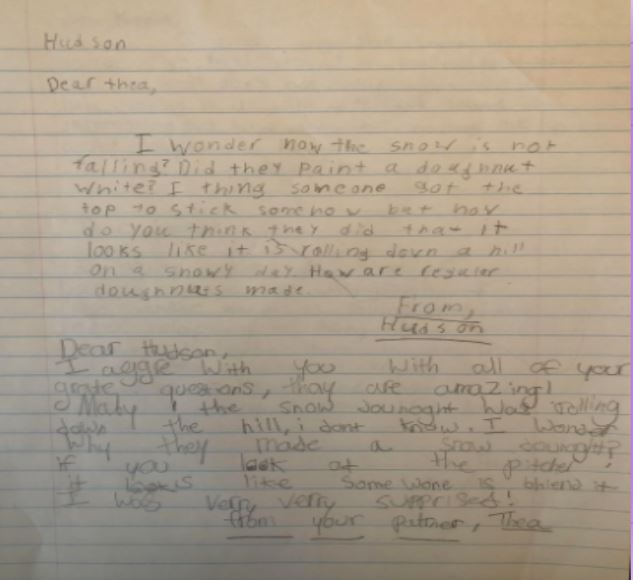 Hudson
Dear thea,
I wonder how the snow is not
falling? Did they paint a doughnut
white? I thing someone got the
top to stick somehow but how
do you think they did that It
looks like it is rolling down a hill
on a snowy day. How are reguler
doughnuts made.
From,
Hudson
Dear Hudson,
I aggre with you with all of your
grate questions, thay are amazing!
Maby the snow dounoght was rolling
down the hill, i dont know. I wonder
Why they made a snow dounoght?
if you look at the
it looks like some wone is bhiend it
I was verry verry supprised!
from your putner, Thea